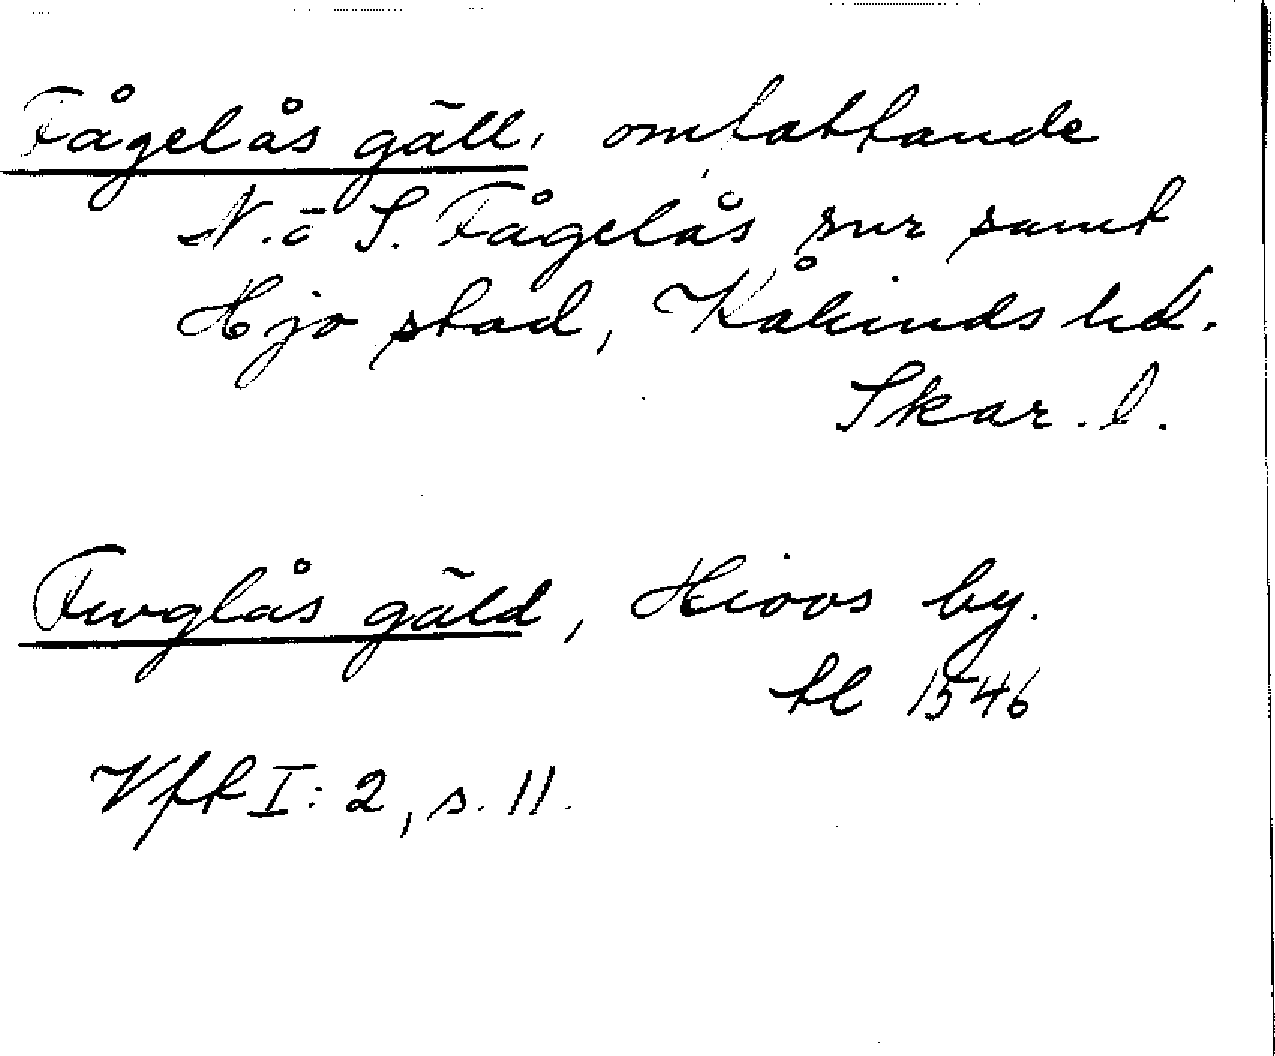 Fågelås gäll, omfattande
N. ō S. Fågelås snr samt
Hjo stad, Kåkinds hd.
Skar. l.
Fuglås gäld, Hioos by.
tl 1546
VffR I: 2, s. 11.